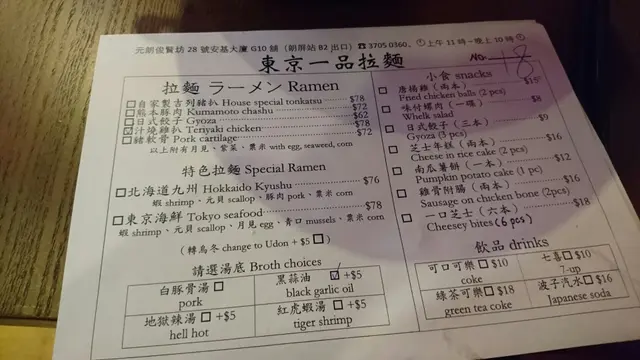 元朗俊賢坊 28 號安基大廈 G10 舖（朗屏站 B2 出口）☎ 3705 0360、🕚上午 11 時-晚上 10 時🕙
東京一品拉麵
NO. 18
拉麵 ラーメン Ramen
☐自家製吉列豬扒 House special tonkatsu $78
☐熊本豚肉 Kumamoto chashu $72
☐日式餃子 Gyoza $62
☑汁燒雞扒 Teriyaki chicken $78
☐豬軟骨 Pork cartilage $72
以上附有月見、紫菜、粟米 with egg, seaweed, corn
特色拉麵 Special Ramen
☐北海道九州 Hokkaido Kyushu $76
蝦 shrimp、元貝 scallop、豚肉 pork、粟米 corn
☐東京海鮮 Tokyo seafood $78
蝦 shrimp、元貝 scallop、月見 egg、青口 mussels、粟米 corn
（轉烏冬 change to Udon +$5 ☐）
請選湯底 Broth choices
白豚骨湯 ☐
pork
黑蒜油 ☑ +$5
black garlic oil
地獄辣湯 ☐ +$5
hell hot
紅虎蝦湯 ☐ +$5
tiger shrimp
小食 snacks
☐ 唐揚雞（兩本） $15
Fried chicken balls (2 pcs)
☐ 味付螺肉（一碟） $8
Whelk salad
☐ 日式餃子（三本） $9
Gyoza (3 pcs)
☐ 芝士年糕（兩本） $16
Cheese in rice cake (2 pcs)
☐ 南瓜薯餅（一本） $12
Pumpkin potato cake (1 pc)
☐ 雞骨附腸（兩本） $16
Sausage on chicken bone (2pcs)
☐ 一口芝士（六本） $18
Cheesey bites (6 pcs)
飲品 drinks
可口可樂 ☐ $10
coke
七喜 ☐ $10
7-up
綠茶可樂 ☐ $18
green tea coke
波子汽水 ☐ $16
Japanese soda